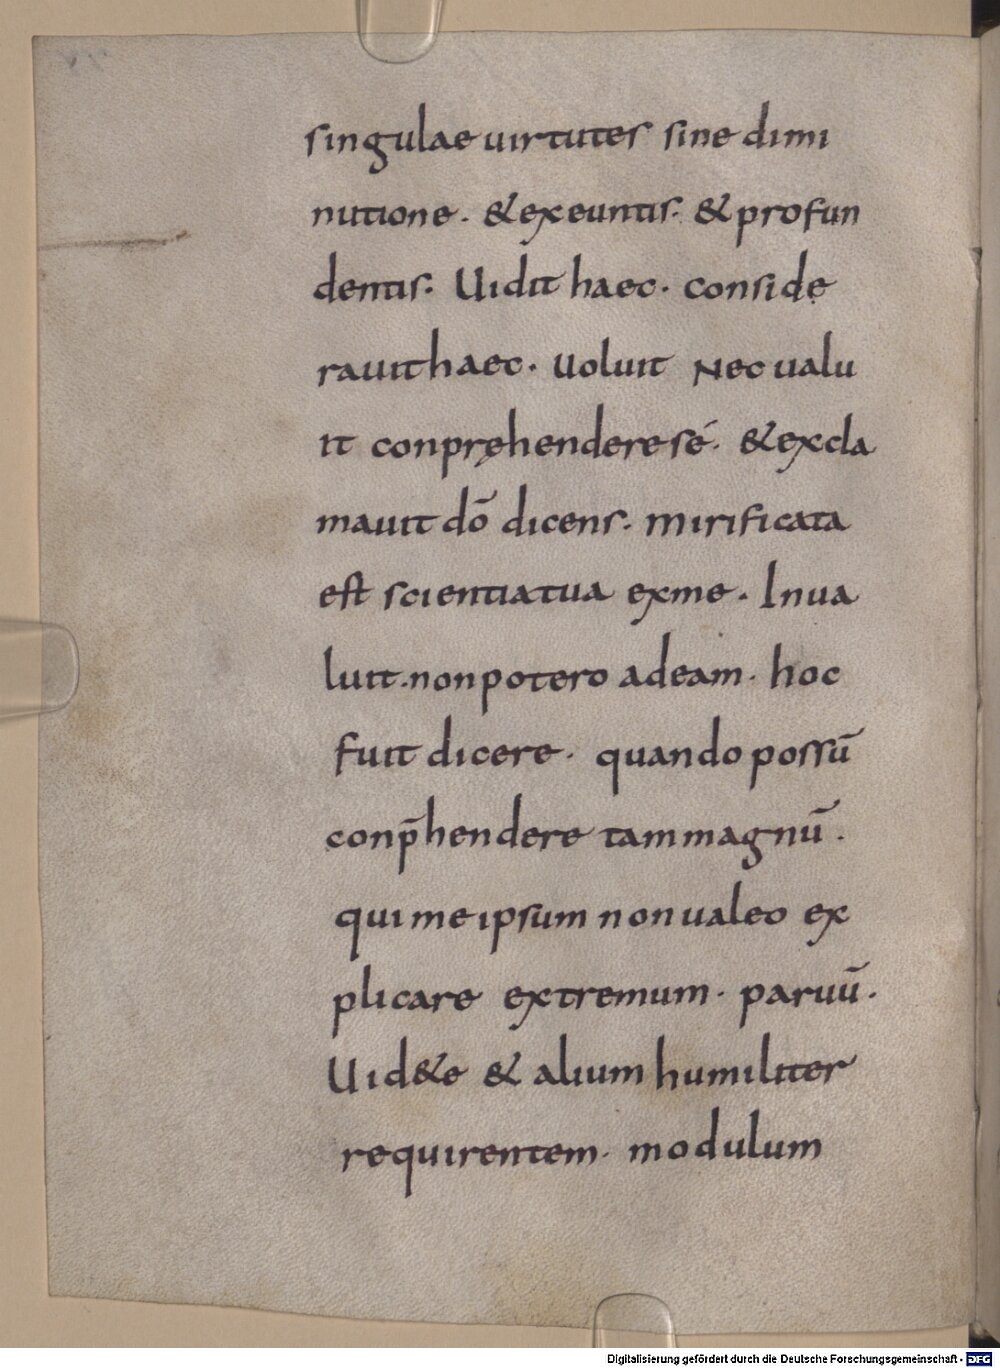 singulae uirtutes sine dimi
nutione. & exeuntis. & profun
dentis. Uidit haec. conside
rauit haec. Uoluit Nec ualu
it conpręhendere sé. & excla
mauit dō dicens. Mirificata
est scientia tua ex me. Inua
luit. non potero ad eam. hoc
fuit dicere. quando possū
conp̄hendere tam magnū.
qui me ipsum non ualeo ex
plicare extremum. paruū.
Uid&e & alium humiliter
requirentem. modulum
Digitalisierung gefördert durch die Deutsche Forschungsgemeinschaft - DFG